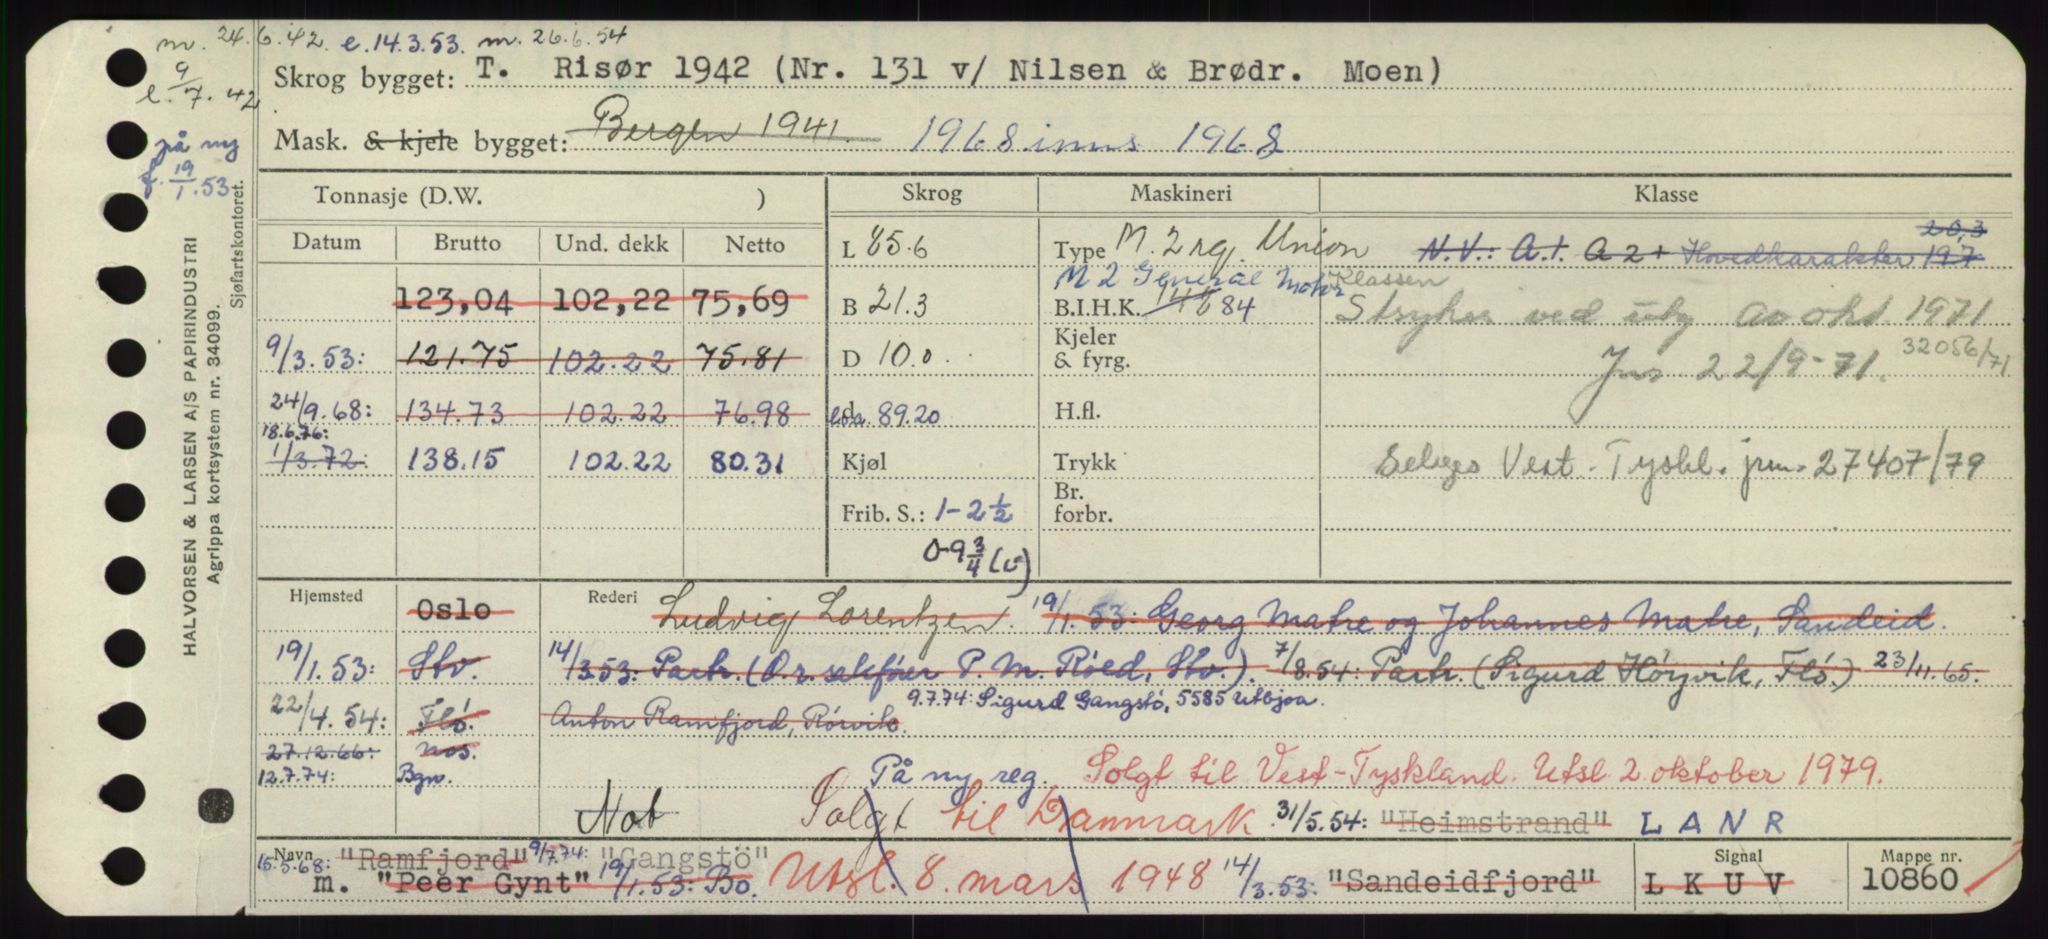 m. 24.6.42. e. 14.3.53. m. 26.6.54
e. 9/7.42
på ny
f. 19/1.53
HALVORSEN & LARSEN A/S PAPIRINDUSTRI
Agrippa kortsystem nr. 34099.
Sjøfartskontoret.
Skrog bygget: T. Risør 1942 (Nr. 131 v/ Nilsen & Brødr. Moen)
Mask. & kjele bygget: Bergen 1941. 1968 inns 1968
Tonnasje (D.W. ) Skrog Maskineri Klasse
Datum Brutto Und. dekk Netto L 85.6 Type M. 2 rg. Union N.V.: A.1. A 2 + Hovedkarakter 197 20,3
M 2 General Motor Klassen
123,04 102,22 75,69 B 21.3 B.I.H.K. 146 84 Strykes ved utg av okt. 1971
9/3.53: 121.75 102.22 75.81 D 10.0 Kjeler & fyrg. Jnr 22/9-71. 32056/71
24/9.68: 134.73 102.22 76.98 d l.o.a. 89.20 H.fl.
18.6.76:
1/3.72: 138.15 102.22 80.31 Kjøl Trykk Selges Vest-Tyskl. jrn. 27407/79
Frib. S.: 1-2 1/2 Br. forbr.
0-9 3/4 (v)
Hjemsted Oslo Rederi Ludvig Lorentzen. 19/1.53: Georg Matre og Johannes Matre, Sandeid.
19/1.53: Stv. 14/3.53: Partr. (D.r. selskfører P. M. Röed, Stv.). 7/8.54: Partr. (Sigurd Höyvik, Flö.) 23/11.65:
22/4.54: Flö. Anton Ramfjord, Rörvik. 9.7.74: Sigurd Gangstö, 5585 Utbjoa.
27.12.66: nos.
12.7.74: Bgn. På ny reg. Solgt til Vest-Tyskland. Utsl. 2. oktober 1979.
Not Solgt til Danmark. 31/5.54: "Heimstrand" L A N R
Navn 15.3.68: "Ramfjord" 9/7.74: "Gangstö" Signal Mappe nr.
m. "Peer Gynt" 19/1.53: Bo. Utsl. 8. mars 1948 14/3.53: "Sandeidfjord" L K U V 10860